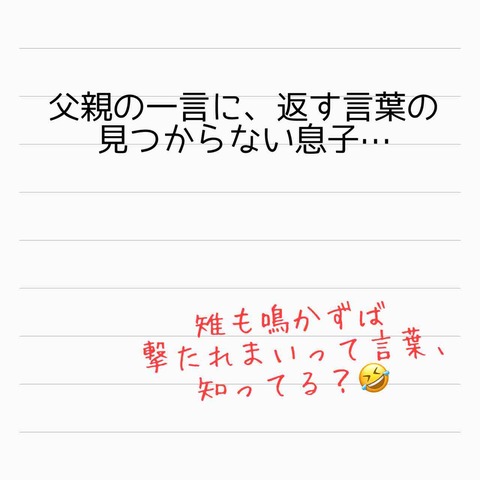 父親の一言に、返す言葉の
見つからない息子…
雉も鳴かずば
撃たれまいって言葉、
知ってる？🤣